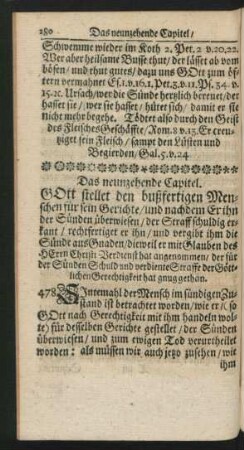 280 Das neunzehende Capitel /
Schwemme wieder im Koth 2. Pet. 2 v. 20, 22.
Wer aber heilsame Busse thut / der lässet ab vom
bösen / und thut gutes / dazu uns GOtt zum öf-
tern vermahnet Es. 1. v. 16. 1. Pet. 3. v. 11. Ps. 34. v.
15. 2c. Ursach / wer die Sünde hertzlich bereuet / der
hasset sie / wer sie hasset / hütet sich / damit er sie
nicht mehr begehe. Tödtet also durch den Geist
des Fleisches Geschäffte / Rom. 8 v. 13. Er creu-
tziget sein Fleisch / sampt den Lüsten und
Begierden / Gal. 5. v. 24
Das neunzehende Capitel.
GOtt stellet den bußfertigen Men-
schen für sein Gerichte / und nachdem Er ihn
der Sünden überwiesen / der Straff schuldig er-
kant / rechtfertiget er ihn / und vergibt ihm die
Sünde aus Gnaden / dieweil er mit Glauben des
HErrn Christi Verdienst hat angenommen / der für
der Sünden Schuld und verdiente Straffe der Gött-
lichen Gerechtigkeit hat gnug gethan.
478. SIntemahl der Mensch im sündigen Zu-
stand ist betrachtet worden / wie er / (so
GOtt nach Gerechtigkeit mit ihm handeln wol-
te) für desselben Gerichte gestellet / der Sünden
überwiesen / und zum ewigen Tod verurtheilet
worden: als müssen wir auch jetzo zusehen / wie
ihm